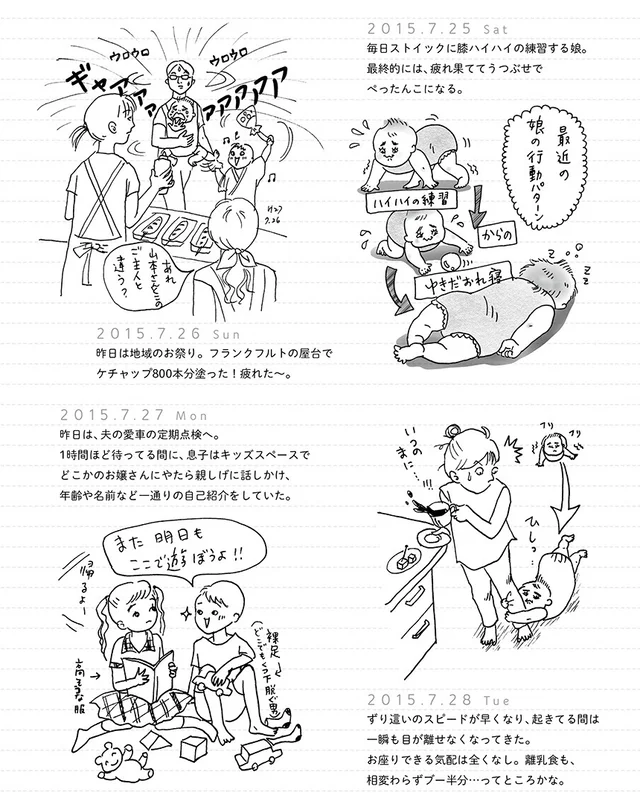 2015.7.25 Sat
毎日ストイックに膝ハイハイの練習する娘。
最終的には、疲れ果ててうつぶせで
ぺったんこになる。
最近の
娘の行動パターン
ハイハイの練習
からの
ゆきだおれ寝
zzz
ウロウロ
ウロウロ
ギャアアァァ
アアアアァァ
7.26
あれ
山本さんとこの
ご主人と
違う?
2015.7.26 Sun
昨日は地域のお祭り。フランクフルトの屋台で
ケチャップ800本分塗った!疲れた〜。
2015.7.27 Mon
昨日は、夫の愛車の定期点検へ。
1時間ほど待ってる間に、息子はキッズスペースで
どこかのお嬢さんにやたら親しげに話しかけ、
年齢や名前など一通りの自己紹介をしていた。
また 明日も
ここで遊ぼうよ!!
帰るよー
高そうな
服
裸足
(どこでもくつ下脱ぐ男)
いつの
まに…!!!
フリ
フリ
ひしっ…
2015.7.28 Tue
ずり這いのスピードが早くなり、起きてる間は
一瞬も目が離せなくなってきた。
お座りできる気配は全くなし。離乳食も、
相変わらずブー半分…ってところかな。